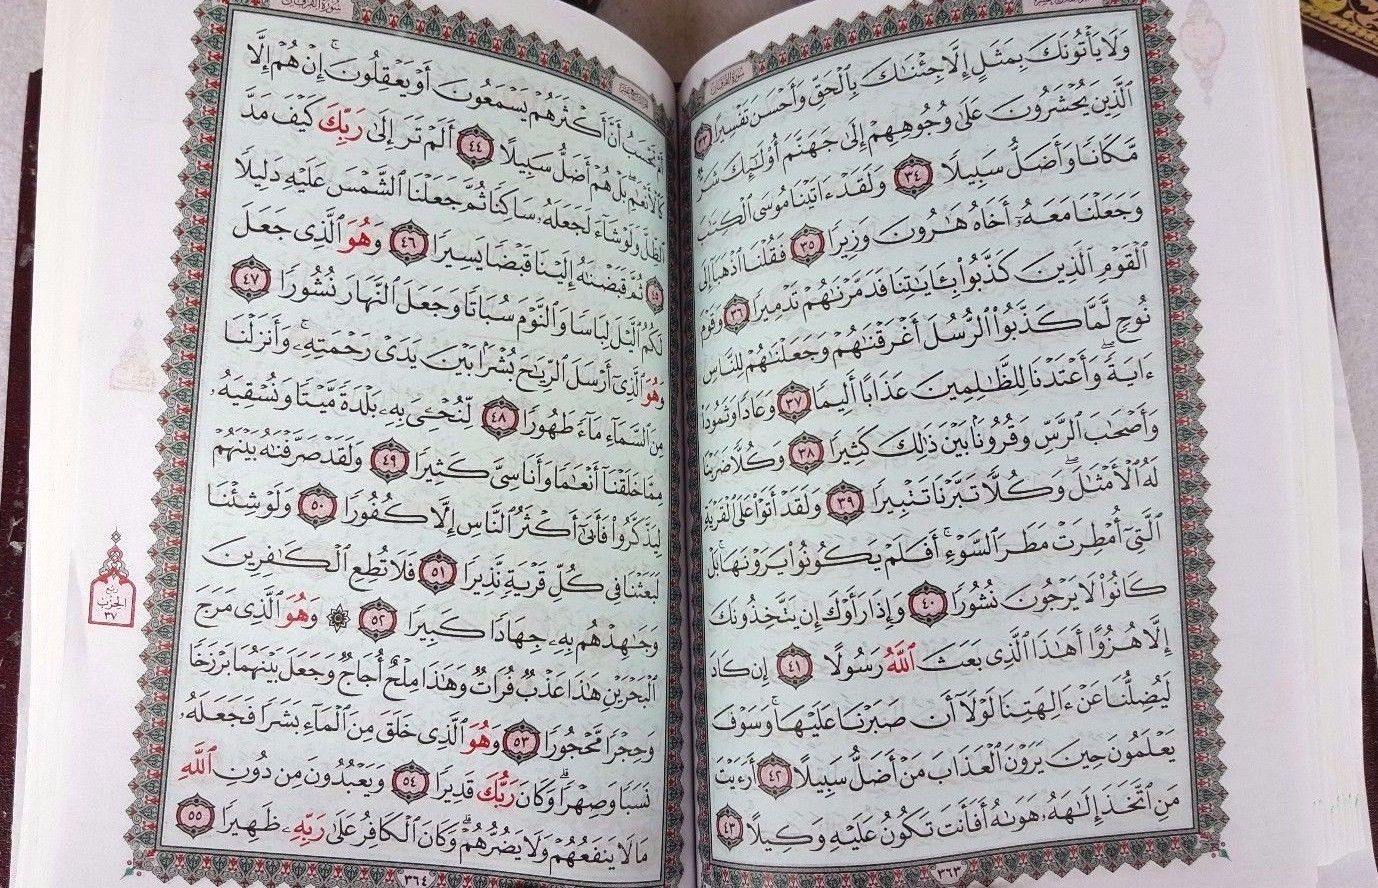 سورة الفرقان
وَلَا يَأْتُونَكَ بِمَثَلٍ إِلَّا جِئْنَٰكَ بِٱلْحَقِّ وَأَحْسَنَ تَفْسِيرًا ٣٣
ٱلَّذِينَ يُحْشَرُونَ عَلَىٰ وُجُوهِهِمْ إِلَىٰ جَهَنَّمَ أُو۟لَٰٓئِكَ شَرٌّ
مَّكَانًا وَأَضَلُّ سَبِيلًا ٣٤ وَلَقَدْ ءَاتَيْنَا مُوسَى ٱلْكِتَٰبَ
وَجَعَلْنَا مَعَهُۥٓ أَخَاهُ هَٰرُونَ وَزِيرًا ٣٥ فَقُلْنَا ٱذْهَبَآ إِلَى
ٱلْقَوْمِ ٱلَّذِينَ كَذَّبُوا۟ بِـَٔايَٰتِنَا فَدَمَّرْنَٰهُمْ تَدْمِيرًا ٣٦ وَقَوْمَ
نُوحٍ لَّمَّا كَذَّبُوا۟ ٱلرُّسُلَ أَغْرَقْنَٰهُمْ وَجَعَلْنَٰهُمْ لِلنَّاسِ
ءَايَةً ۖ وَأَعْتَدْنَا لِلظَّٰلِمِينَ عَذَابًا أَلِيمًا ٣٧ وَعَادًا وَثَمُودَا۟
وَأَصْحَٰبَ ٱلرَّسِّ وَقُرُونًۢا بَيْنَ ذَٰلِكَ كَثِيرًا ٣٨ وَكُلًّا ضَرَبْنَا
لَهُ ٱلْأَمْثَٰلَ ۖ وَكُلًّا تَبَّرْنَا تَتْبِيرًا ٣٩ وَلَقَدْ أَتَوْا۟ عَلَى ٱلْقَرْيَةِ
ٱلَّتِىٓ أُمْطِرَتْ مَطَرَ ٱلسَّوْءِ ۚ أَفَلَمْ يَكُونُوا۟ يَرَوْنَهَا ۚ بَلْ
كَانُوا۟ لَا يَرْجُونَ نُشُورًا ٤٠ وَإِذَا رَأَوْكَ إِن يَتَّخِذُونَكَ
إِلَّا هُزُوًا أَهَٰذَا ٱلَّذِى بَعَثَ ٱللَّهُ رَسُولًا ٤١ إِن كَادَ
لَيُضِلُّنَا عَنْ ءَالِهَتِنَا لَوْلَآ أَن صَبَرْنَا عَلَيْهَا ۚ وَسَوْفَ
يَعْلَمُونَ حِينَ يَرَوْنَ ٱلْعَذَابَ مَنْ أَضَلُّ سَبِيلًا ٤٢ أَرَءَيْتَ
مَنِ ٱتَّخَذَ إِلَٰهَهُۥ هَوَىٰهُ أَفَأَنتَ تَكُونُ عَلَيْهِ وَكِيلًا ٤٣
٣٦٣
سورة الفرقان
أَمْ تَحْسَبُ أَنَّ أَكْثَرَهُمْ يَسْمَعُونَ أَوْ يَعْقِلُونَ ۚ إِنْ هُمْ إِلَّا
كَٱلْأَنْعَٰمِ ۖ بَلْ هُمْ أَضَلُّ سَبِيلًا ٤٤ أَلَمْ تَرَ إِلَىٰ رَبِّكَ كَيْفَ مَدَّ
ٱلظِّلَّ وَلَوْ شَآءَ لَجَعَلَهُۥ سَاكِنًا ثُمَّ جَعَلْنَا ٱلشَّمْسَ عَلَيْهِ دَلِيلًا
٤٥ ثُمَّ قَبَضْنَٰهُ إِلَيْنَا قَبْضًا يَسِيرًا ٤٦ وَهُوَ ٱلَّذِى جَعَلَ
لَكُمُ ٱلَّيْلَ لِبَاسًا وَٱلنَّوْمَ سُبَاتًا وَجَعَلَ ٱلنَّهَارَ نُشُورًا ٤٧
وَهُوَ ٱلَّذِىٓ أَرْسَلَ ٱلرِّيَٰحَ بُشْرًۢا بَيْنَ يَدَىْ رَحْمَتِهِۦ ۚ وَأَنزَلْنَا
مِنَ ٱلسَّمَآءِ مَآءً طَهُورًا ٤٨ لِّنُحْۦِىَ بِهِۦ بَلْدَةً مَّيْتًا وَنُسْقِيَهُۥ
مِمَّا خَلَقْنَآ أَنْعَٰمًا وَأَنَاسِىَّ كَثِيرًا ٤٩ وَلَقَدْ صَرَّفْنَٰهُ بَيْنَهُمْ
لِيَذَّكَّرُوا۟ فَأَبَىٰٓ أَكْثَرُ ٱلنَّاسِ إِلَّا كُفُورًا ٥٠ وَلَوْ شِئْنَا
لَبَعَثْنَا فِى كُلِّ قَرْيَةٍ نَّذِيرًا ٥١ فَلَا تُطِعِ ٱلْكَٰفِرِينَ
وَجَٰهِدْهُم بِهِۦ جِهَادًا كَبِيرًا ٥٢ ۞ وَهُوَ ٱلَّذِى مَرَجَ
ٱلْبَحْرَيْنِ هَٰذَا عَذْبٌ فُرَاتٌ وَهَٰذَا مِلْحٌ أُجَاجٌ وَجَعَلَ بَيْنَهُمَا بَرْزَخًا
وَحِجْرًا مَّحْجُورًا ٥٣ وَهُوَ ٱلَّذِى خَلَقَ مِنَ ٱلْمَآءِ بَشَرًا فَجَعَلَهُۥ
نَسَبًا وَصِهْرًا ۗ وَكَانَ رَبُّكَ قَدِيرًا ٥٤ وَيَعْبُدُونَ مِن دُونِ ٱللَّهِ
مَا لَا يَنفَعُهُمْ وَلَا يَضُرُّهُمْ ۗ وَكَانَ ٱلْكَافِرُ عَلَىٰ رَبِّهِۦ ظَهِيرًا ٥٥
٣٦٤
ربع
الحزب
٣٧